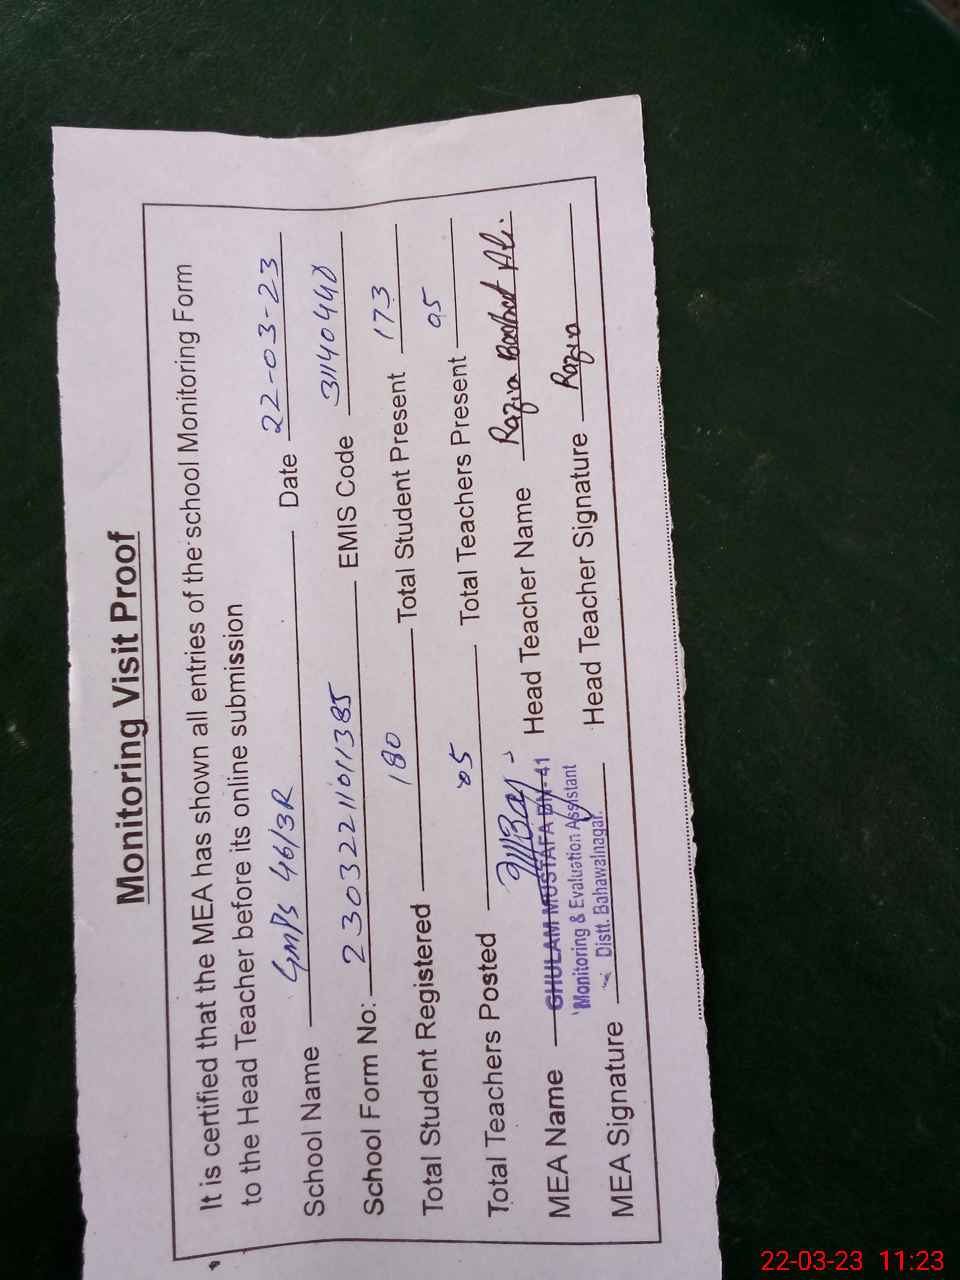 Monitoring Visit Proof
It is certified that the MEA has shown all entries of the school Monitoring Form
to the Head Teacher before its online submission
School Name GMPS 46/3R Date 22-03-23
School Form No: 23032211011385 EMIS Code
Total Student Registered 180 Total Student Present 173
Total Teachers Posted 05 Total Teachers Present 05
MEA Name GHULAM MUSTAFA BN-41 Head Teacher Name Razia Ali.
Monitoring & Evaluation Assistant
Distt. Bahawalnagar.
MEA Signature Head Teacher Signature Razia
22-03-23 11:23